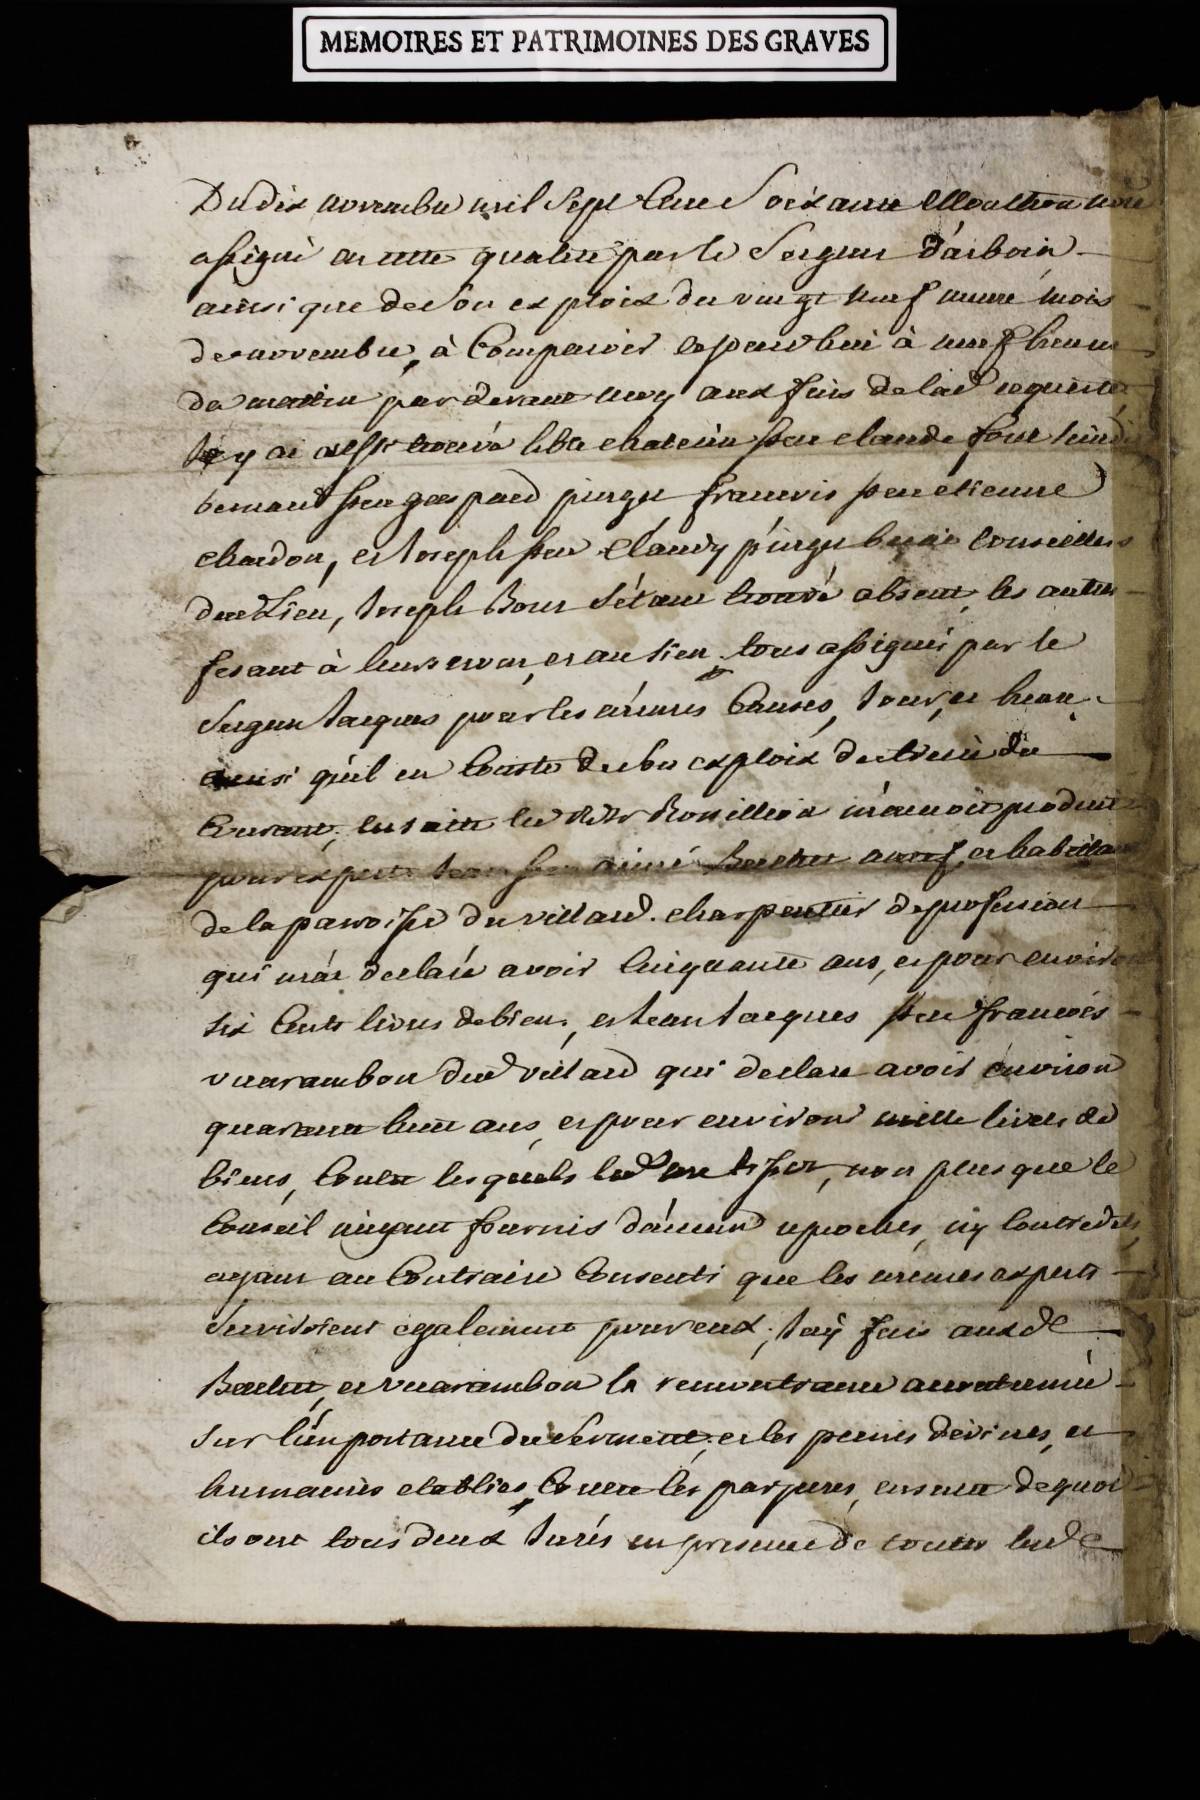 MEMOIRES ET PATRIMOINES DES GRAVES
Du dix novembre mil Sept Cent Soixante
assigné en cette qualité par le Sergent d'arboin
ainsi que de Son exploix du vingt neuf même mois
de novembre, à Comparoir ce jourd'hui à neuf heures
du matin par devant moy aux fins de lad requete
Claude
gaspard francois etienne
chardon, et Joseph Claudy Conseillers
dud Lieu, Joseph Bour s'étant trouvé absent, les autres
fesant à leurs noms, et au sien tous assignés par le
Sergent Jacques pour les mêmes Causes, Jour, et heure
ainsi qu'il en Conste de son exploix
Courant, ensuitte led m'auroit produit
pour experts aimé et habittant
de la paroisse du villard charpentier de profession
qui m'at declaré avoir Cinquante ans, et pour environ
six Cents livres de biens, et Jean Jacques feu francois
vuarambon dud villard qui declare avoir environ
quarante huit ans, et pour environ mille livres de
biens, Contre lesquels led non plus que le
Conseil n'ayant fournis d'aucun reproches, ny Contredits,
ayant au Contraire Consenti que les mêmes experts
Serviroient egalement pour eux; J'ay fais aux d
et vuarambon la remontrance accoutumée
sur l'importance du serment, et les peines devines, et
humaines etablies Contre les parjures, ensuitte de quoi
ils ont tous deux Jurés en presence de toutes lesd